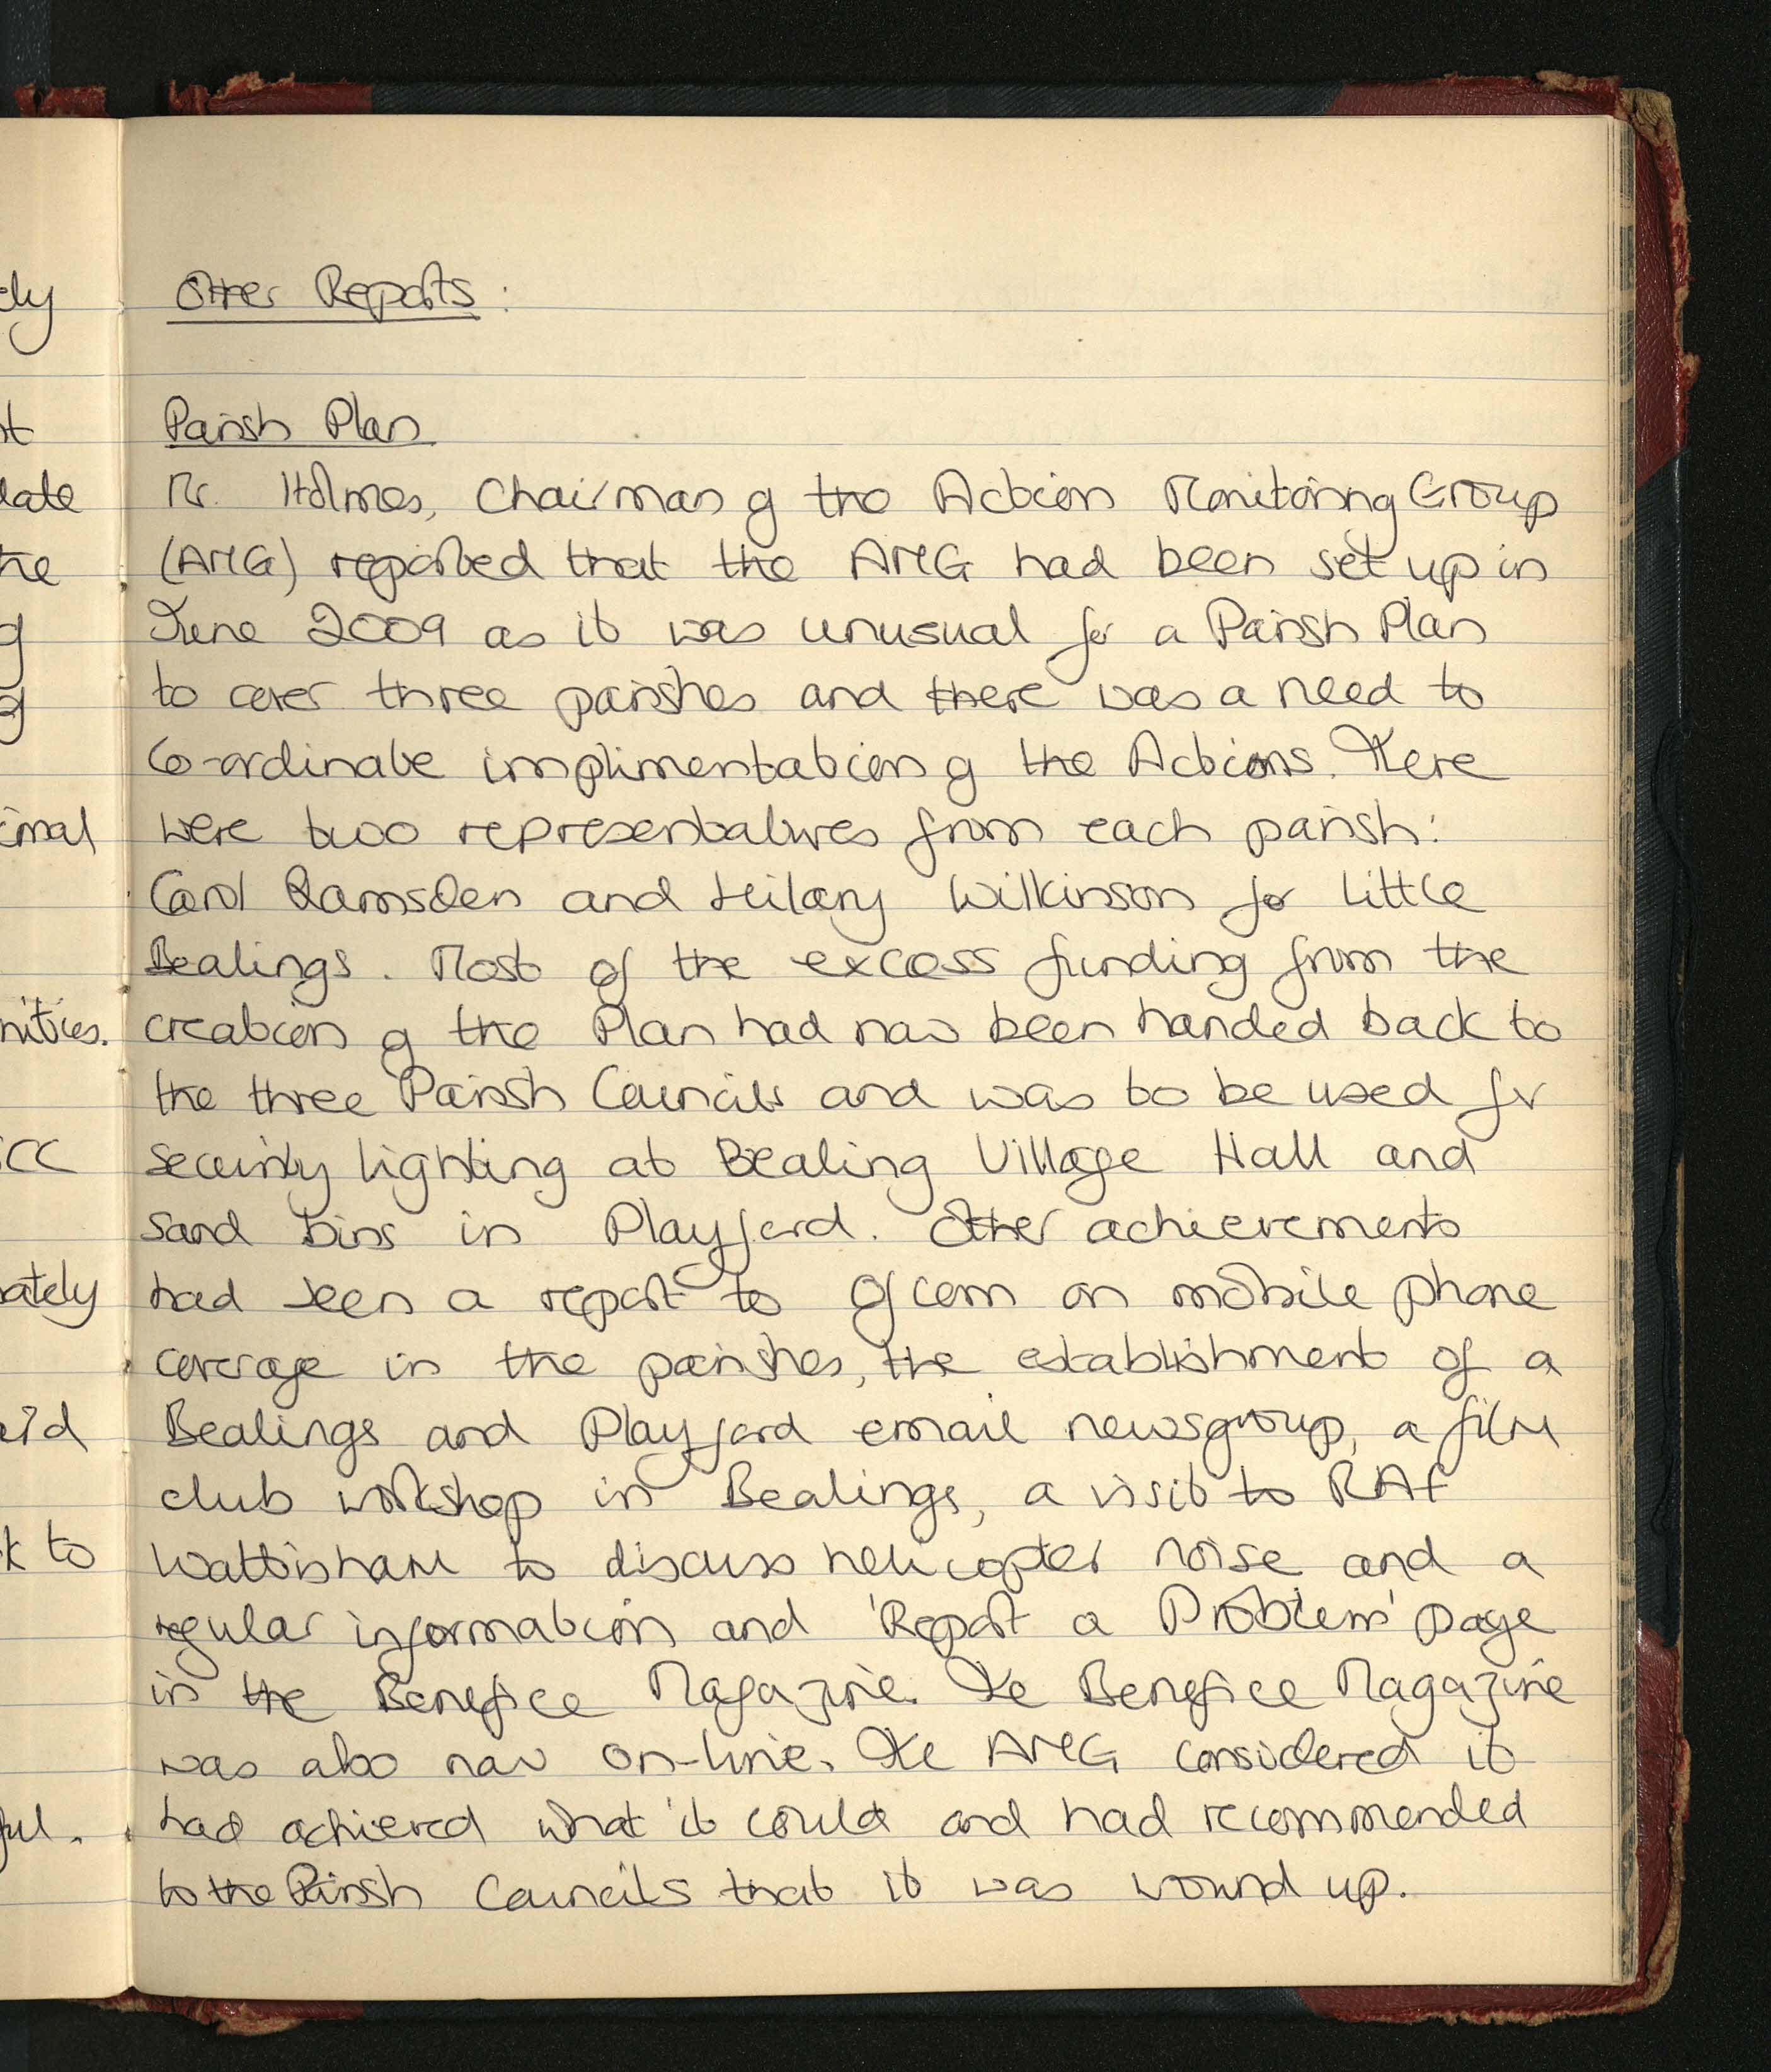 Other Reports:
Parish Plan
Mr. Holmes, Chairman of the Action Monitoring Group
(AMG) reported that the AMG had been set up in
June 2009 as it was unusual for a Parish Plan
to cover three parishes and there was a need to
Co-ordinate implimentation of the Actions. There
were two representatives from each parish:
Carol Ramsden and Hilary Wilkinson for Little
Bealings. Most of the excess funding from the
creation of the Plan had now been handed back to
the three Parish Councils and was to be used for
security lighting at Bealing Village Hall and
sand bins in Playford. Other achievements
had been a report to Ofcom on mobile phone
coverage in the parishes, the establishment of a
Bealings and Playford email newsgroup, a film
club workshop in Bealings, a visit to RAF
Wattisham to discuss helicopter noise and a
regular information and 'Report a Problem' page
in the Benefice Magazine. The Benefice Magazine
was also now on-line. The AMG considered it
had achieved what it could and had recommended
to the Parish Councils that it was wound up.